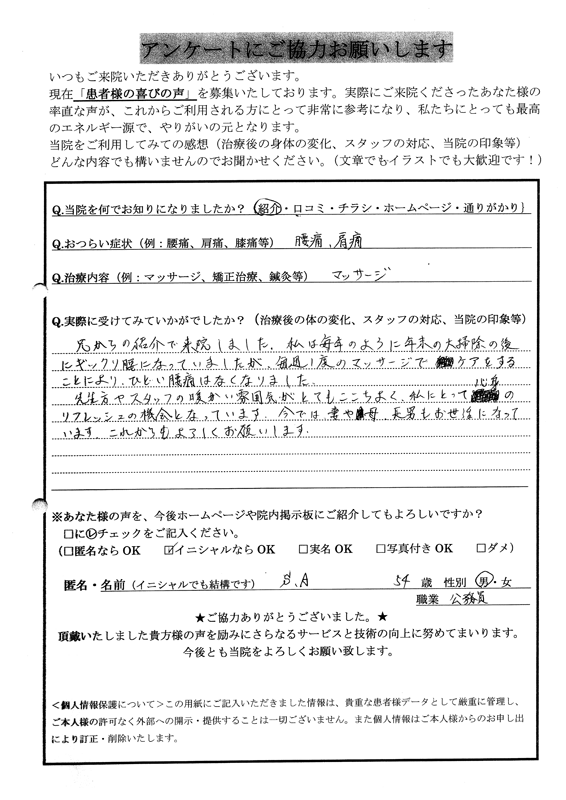 アンケートにご協力お願いします
いつもご来院いただきありがとうございます。
現在「患者様の喜びの声」を募集いたしております。実際にご来院くださったあなた様の
率直な声が、これからご利用される方にとって非常に参考になり、私たちにとっても最高
のエネルギー源で、やりがいの元となります。
当院をご利用してみての感想（治療後の身体の変化、スタッフの対応、当院の印象等）
どんな内容でも構いませんのでお聞かせください。（文章でもイラストでも大歓迎です！）
Q.当院を何でお知りになりましたか？｛紹介・口コミ・チラシ・ホームページ・通りがかり｝
Q.おつらい症状（例：腰痛、肩痛、膝痛等） 腰痛、肩痛
Q.治療内容（例：マッサージ、矯正治療、鍼灸等） マッサージ
Q.実際に受けてみていかがでしたか？（治療後の体の変化、スタッフの対応、当院の印象等）
兄からの紹介で来院しました。私は毎年のように年末の大掃除の後
にギックリ腰になっていましたが、毎週1度のマッサージでケアをする
ことにより、ひどい腰痛はなくなりました。
先生方やスタッフの暖かい雰囲気がとてもここちよく、私にとって心身の
リフレッシュの機会となっています。今では妻や母、長男もお世話になって
います。これからもよろしくお願いします。
※あなた様の声を、今後ホームページや院内掲示板にご紹介してもよろしいですか？
□に☑チェックをご記入ください。
（□匿名なら OK ☑イニシャルなら OK □実名 OK □写真付き OK □ダメ）
匿名・名前（イニシャルでも結構です） S.A 54 歳 性別 男・女
職業 公務員
★ご協力ありがとうございました。★
頂戴いたしました貴方様の声を励みにさらなるサービスと技術の向上に努めてまいります。
今後とも当院をよろしくお願い致します。
＜個人情報保護について＞この用紙にご記入いただきました情報は、貴重な患者様データとして厳重に管理し、
ご本人様の許可なく外部への開示・提供することは一切ございません。また個人情報はご本人様からのお申し出
により訂正・削除いたします。